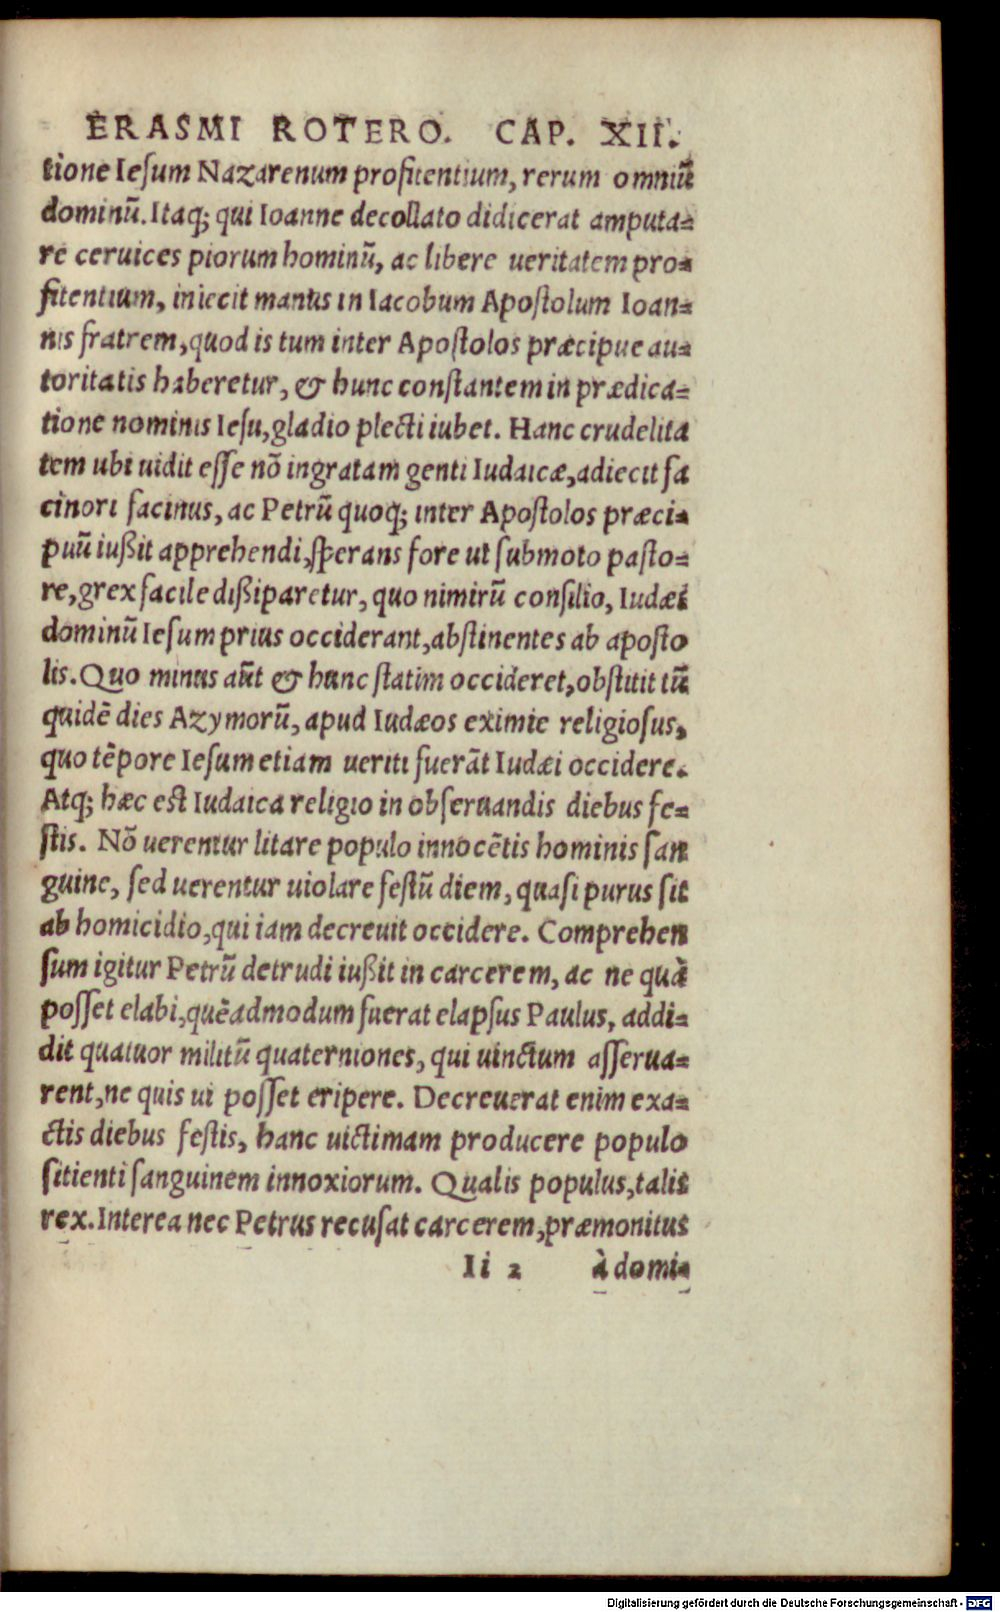 ERASMI ROTERO. CAP. XII.
tione Iesum Nazarenum profitentium, rerum omniū
dominū. Itaq; qui Ioanne decollato didicerat amputa-
re ceruices piorum hominū, ac libere ueritatem pro-
fitentium, iniecit manus in Iacobum Apostolum Ioan-
nis fratrem, quod is tum inter Apostolos præcipue au-
toritatis haberetur, & hunc constantem in prædica-
tione nominis Iesu, gladio plecti iubet. Hanc crudelita
tem ubi uidit esse nō ingratam genti Iudaicæ, adiecit fa
cinori facinus, ac Petrū quoq; inter Apostolos præci-
puū iußit apprehendi, sperans fore ut submoto pasto-
re, grex facile dißiparetur, quo nimirū consilio, Iudæi
dominū Iesum prius occiderant, abstinentes ab aposto
lis. Quo minus aūt & hunc statim occideret, obstitit tū
quidē dies Azymorū, apud Iudæos eximie religiosus,
quo tēpore Iesum etiam ueriti fuerāt Iudæi occidere.
Atq; hæc est Iudaica religio in obseruandis diebus fe-
stis. Nō uerentur litare populo innocētis hominis san
guine, sed uerentur uiolare festū diem, quasi purus sit
ab homicidio, qui iam decreuit occidere. Comprehen
sum igitur Petrū detrudi iußit in carcerem, ac ne quà
posset elabi, quēadmodum fuerat elapsus Paulus, addi-
dit quatuor militū quaterniones, qui uinctum asserua-
rent, ne quis ui posset eripere. Decreuerat enim exa-
ctis diebus festis, hanc uictimam producere populo
sitienti sanguinem innoxiorum. Qualis populus, talis
rex. Interea nec Petrus recusat carcerem, præmonitus
Ii 2 à domi-
Digitalisierung gefördert durch die Deutsche Forschungsgemeinschaft - DFG